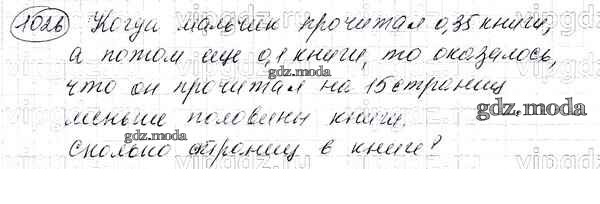 1026 Когда мальчик прочитал 0,35 книги,
а потом еще 0,1 книги, то оказалось,
что он прочитал на 15 страниц
меньше половины книги.
Сколько страниц в книге?
gdz.moda
gdz.moda
gdz.moda
gdz.moda